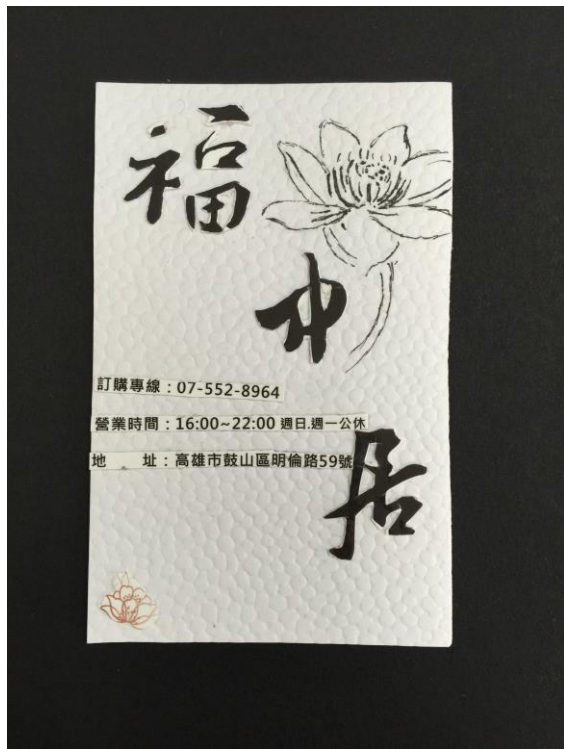 福
中
居
訂購專線：07-552-8964
營業時間：16:00~22:00 週日.週一公休
地　　址：高雄市鼓山區明倫路59號